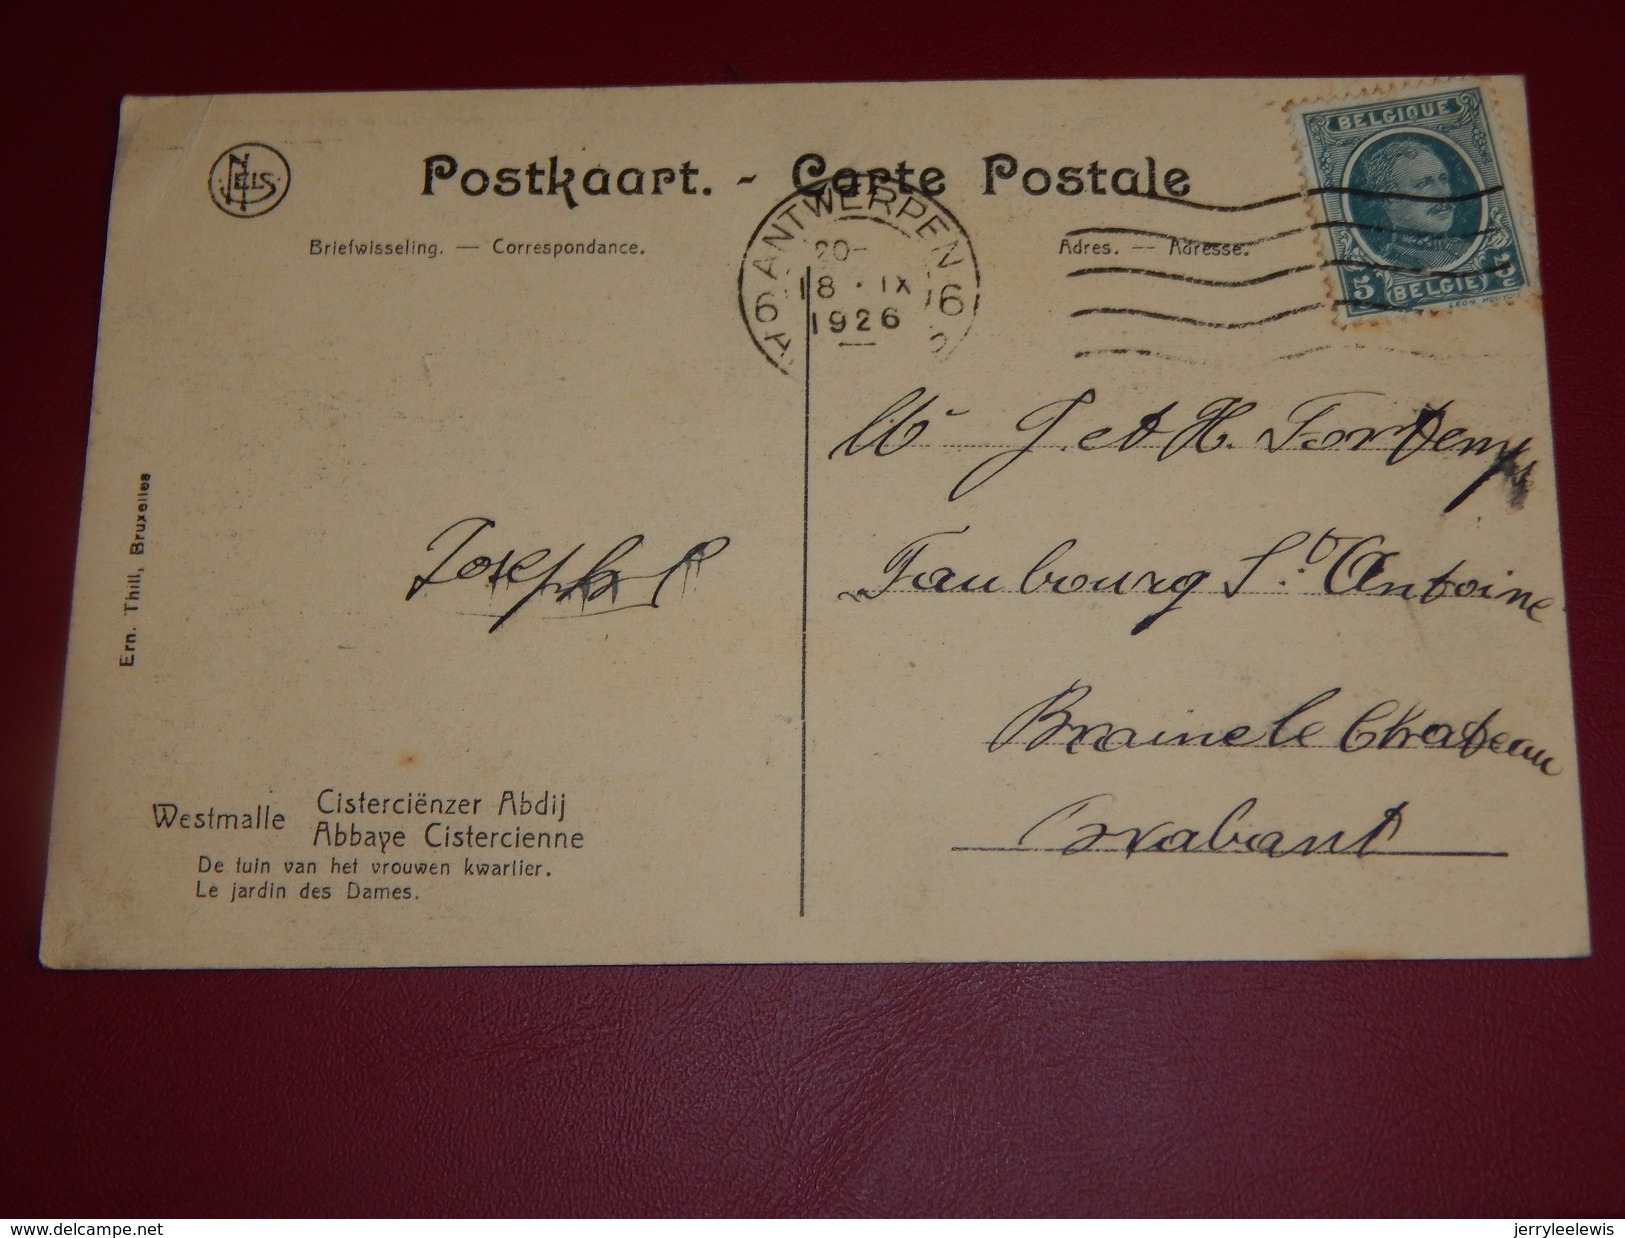 NELS
Postkaart. - Carte Postale
Briefwisseling. — Correspondance.
Adres. — Adresse.
BELGIQUE
5 BELGIË 5
C C
ANTWERPEN
6 6
20-
18 · IX
1926
A
Mr J. et H. Fortemps
Faubourg St. Antoine
Braine le Chateau
Brabant
Joseph
Ern. Thill, Bruxelles
Westmalle Cisterciënzer Abdij
Abbaye Cistercienne
De tuin van het vrouwen kwartier.
Le jardin des Dames.
www.delcampe.net
jerryleelewis